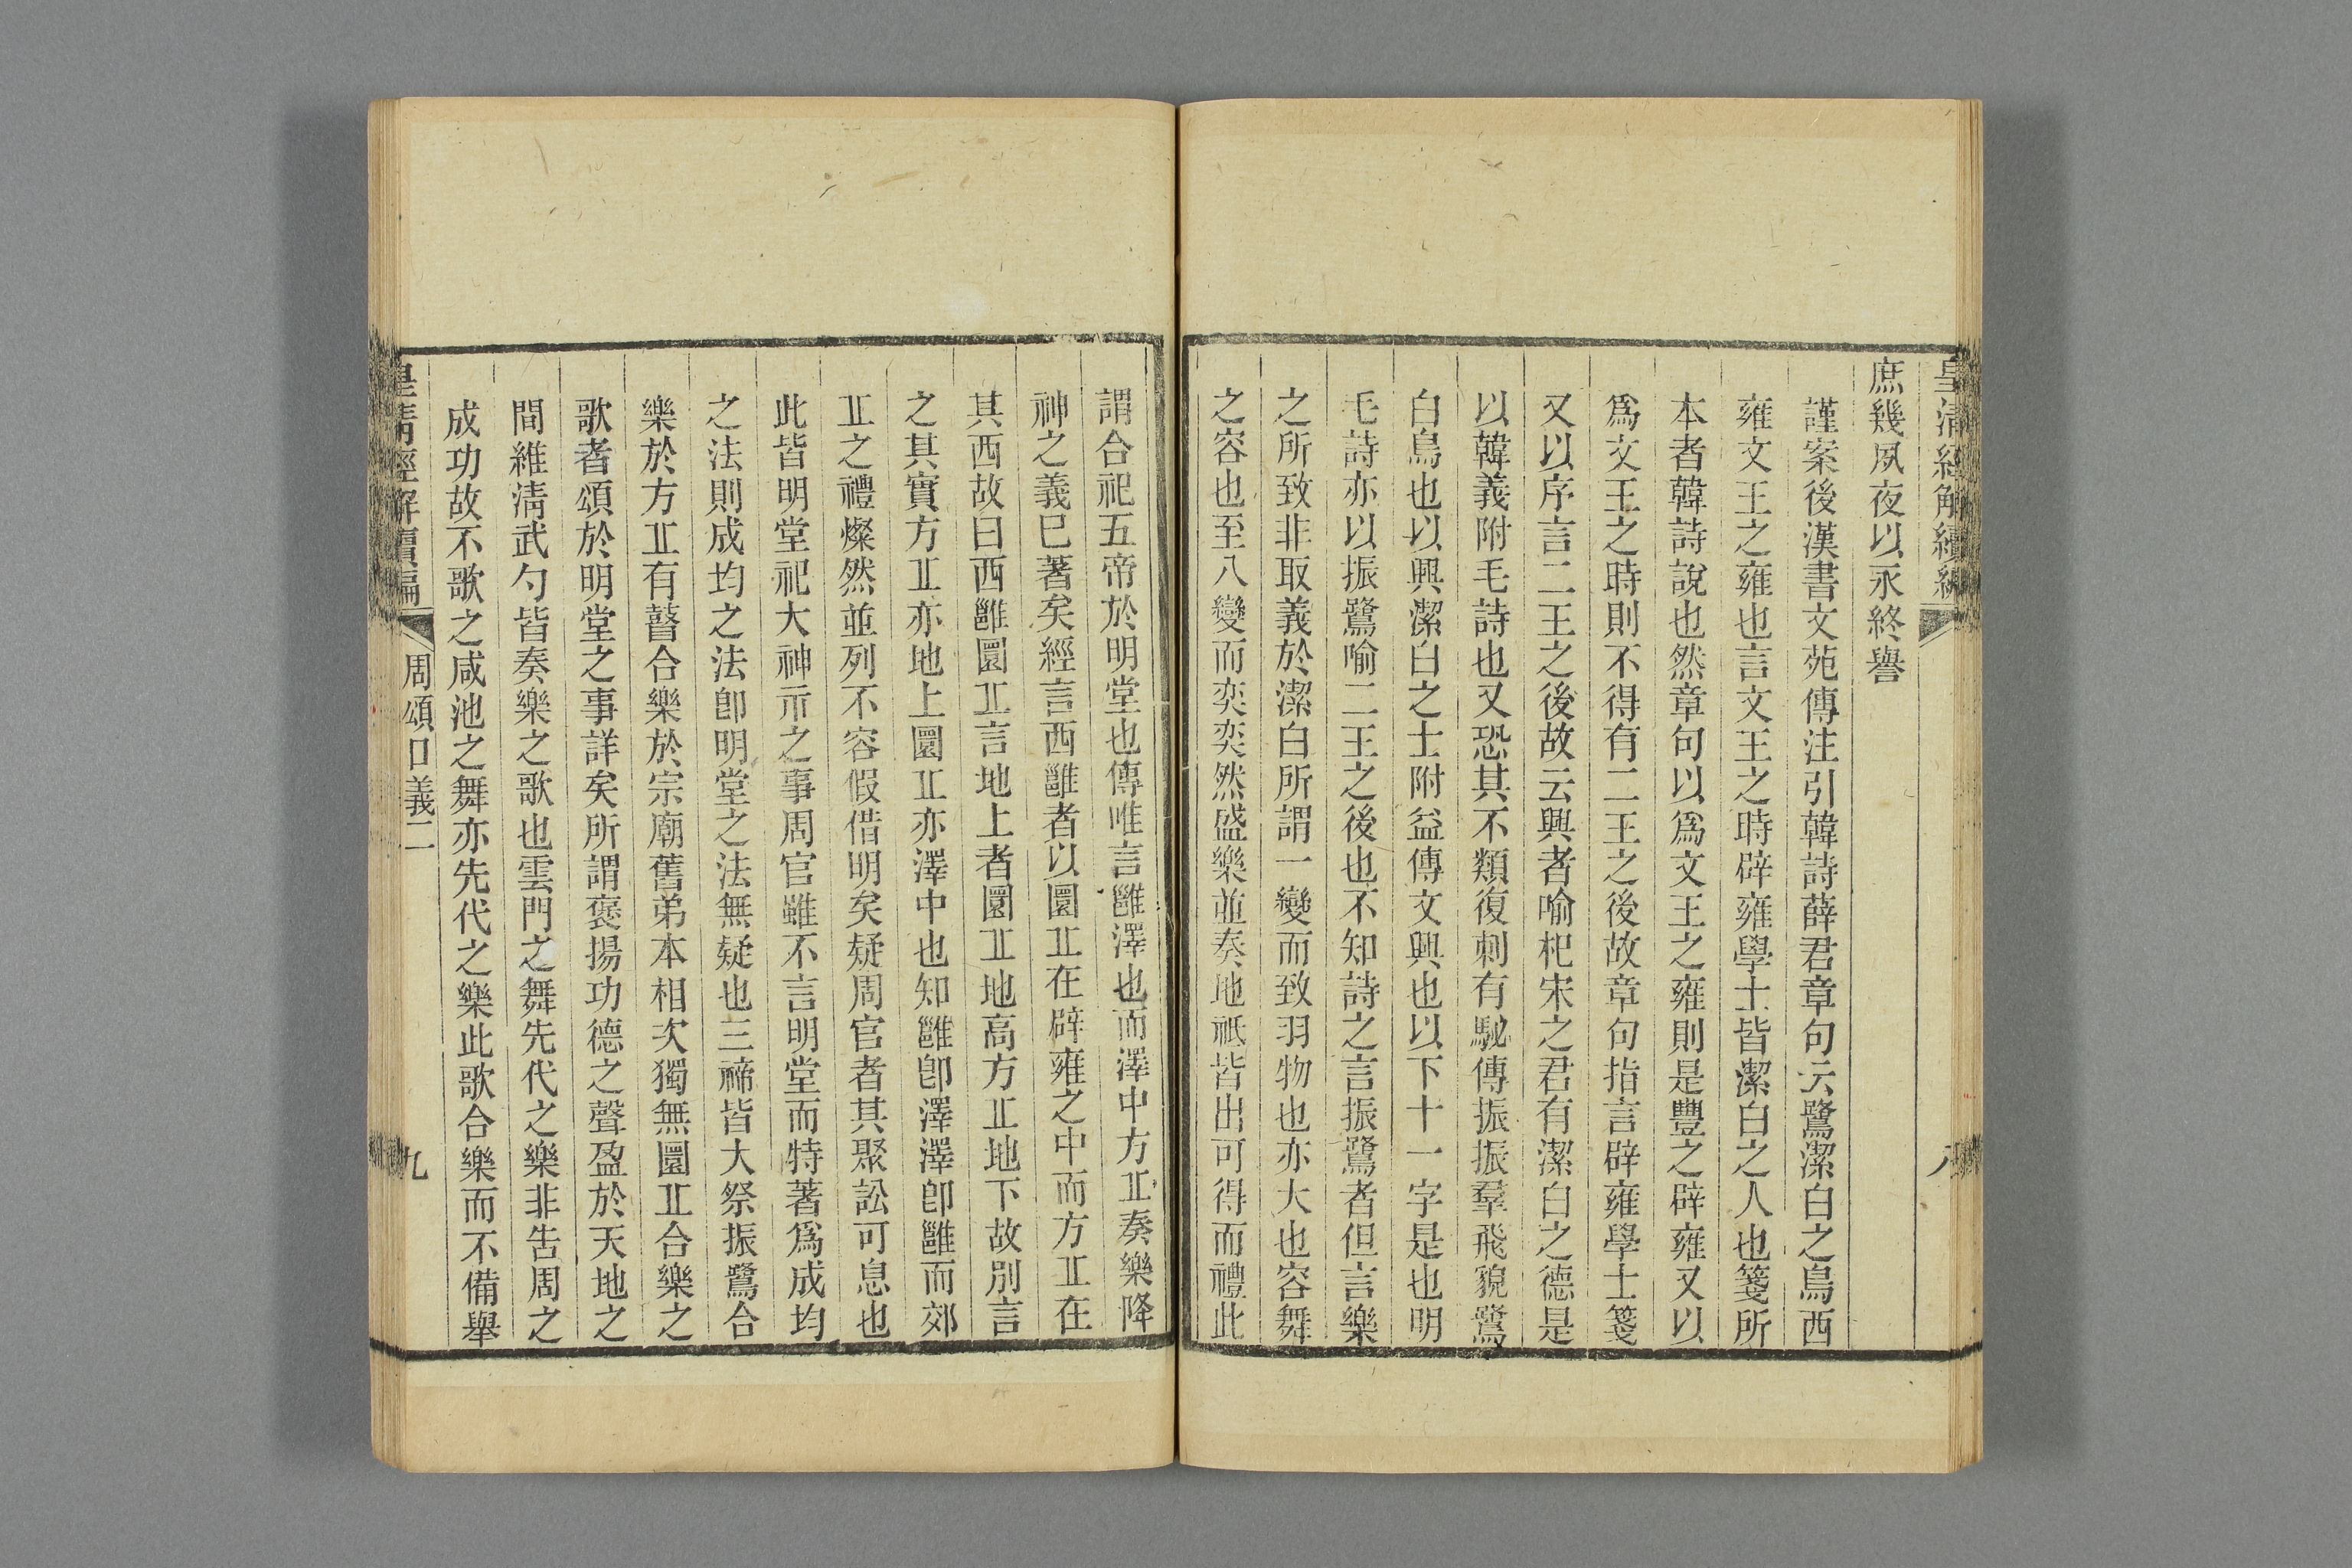 皇清經解續編
八
庶幾夙夜以永終譽
謹案後漢書文苑傳注引韓詩薛君章句云鷺潔白之鳥西
雍文王之雍也言文王之時辟雍學士皆潔白之人也箋所
本者韓詩說也然章句以爲文王之雍則是豐之辟雍又以
爲文王之時則不得有二王之後故章句指言辟雍學士箋
又以序言二王之後故云興者喻杞宋之君有潔白之德是
以韓義附毛詩也又恐其不類復刺有駜傳振振羣飛貌鷺
白鳥也以興潔白之士附益傳文興也以下十一字是也明
毛詩亦以振鷺喻二王之後也不知詩之言振鷺者但言樂
之所致非取義於潔白所謂一變而致羽物也亦大也容舞
之容也至八變而奕奕然盛樂並奏地祇皆出可得而禮此
謂合祀五帝於明堂也傳唯言雝澤也而澤中方丠奏樂降
神之義已著矣經言西雝者以圜丠在辟雍之中而方丠在
其西故曰西雝圜丠言地上者圜丠地高方丠地下故別言
之其實方丠亦地上圜丠亦澤中也知雝卽澤澤卽雝而郊
丠之禮燦然並列不容假借明矣疑周官者其聚訟可息也
此皆明堂祀大神示之事周官雖不言明堂而特著爲成均
之法則成均之法卽明堂之法無疑也三禘皆大祭振鷺合
樂於方丠有瞽合樂於宗廟舊弟本相次獨無圜丠合樂之
歌者頌於明堂之事詳矣所謂褒揚功德之聲盈於天地之
間維淸武勺皆奏樂之歌也雲門之舞先代之樂非告周之
成功故不歌之咸池之舞亦先代之樂此歌合樂而不備舉
皇清經解續編
周頌口義二
九